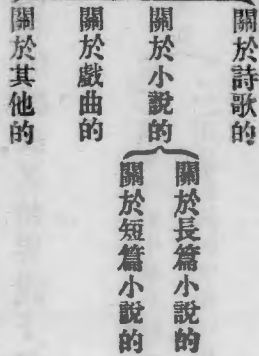 關於詩歌的
關於小說的
關於長篇小說的
關於短篇小說的
關於戲曲的
關於其他的